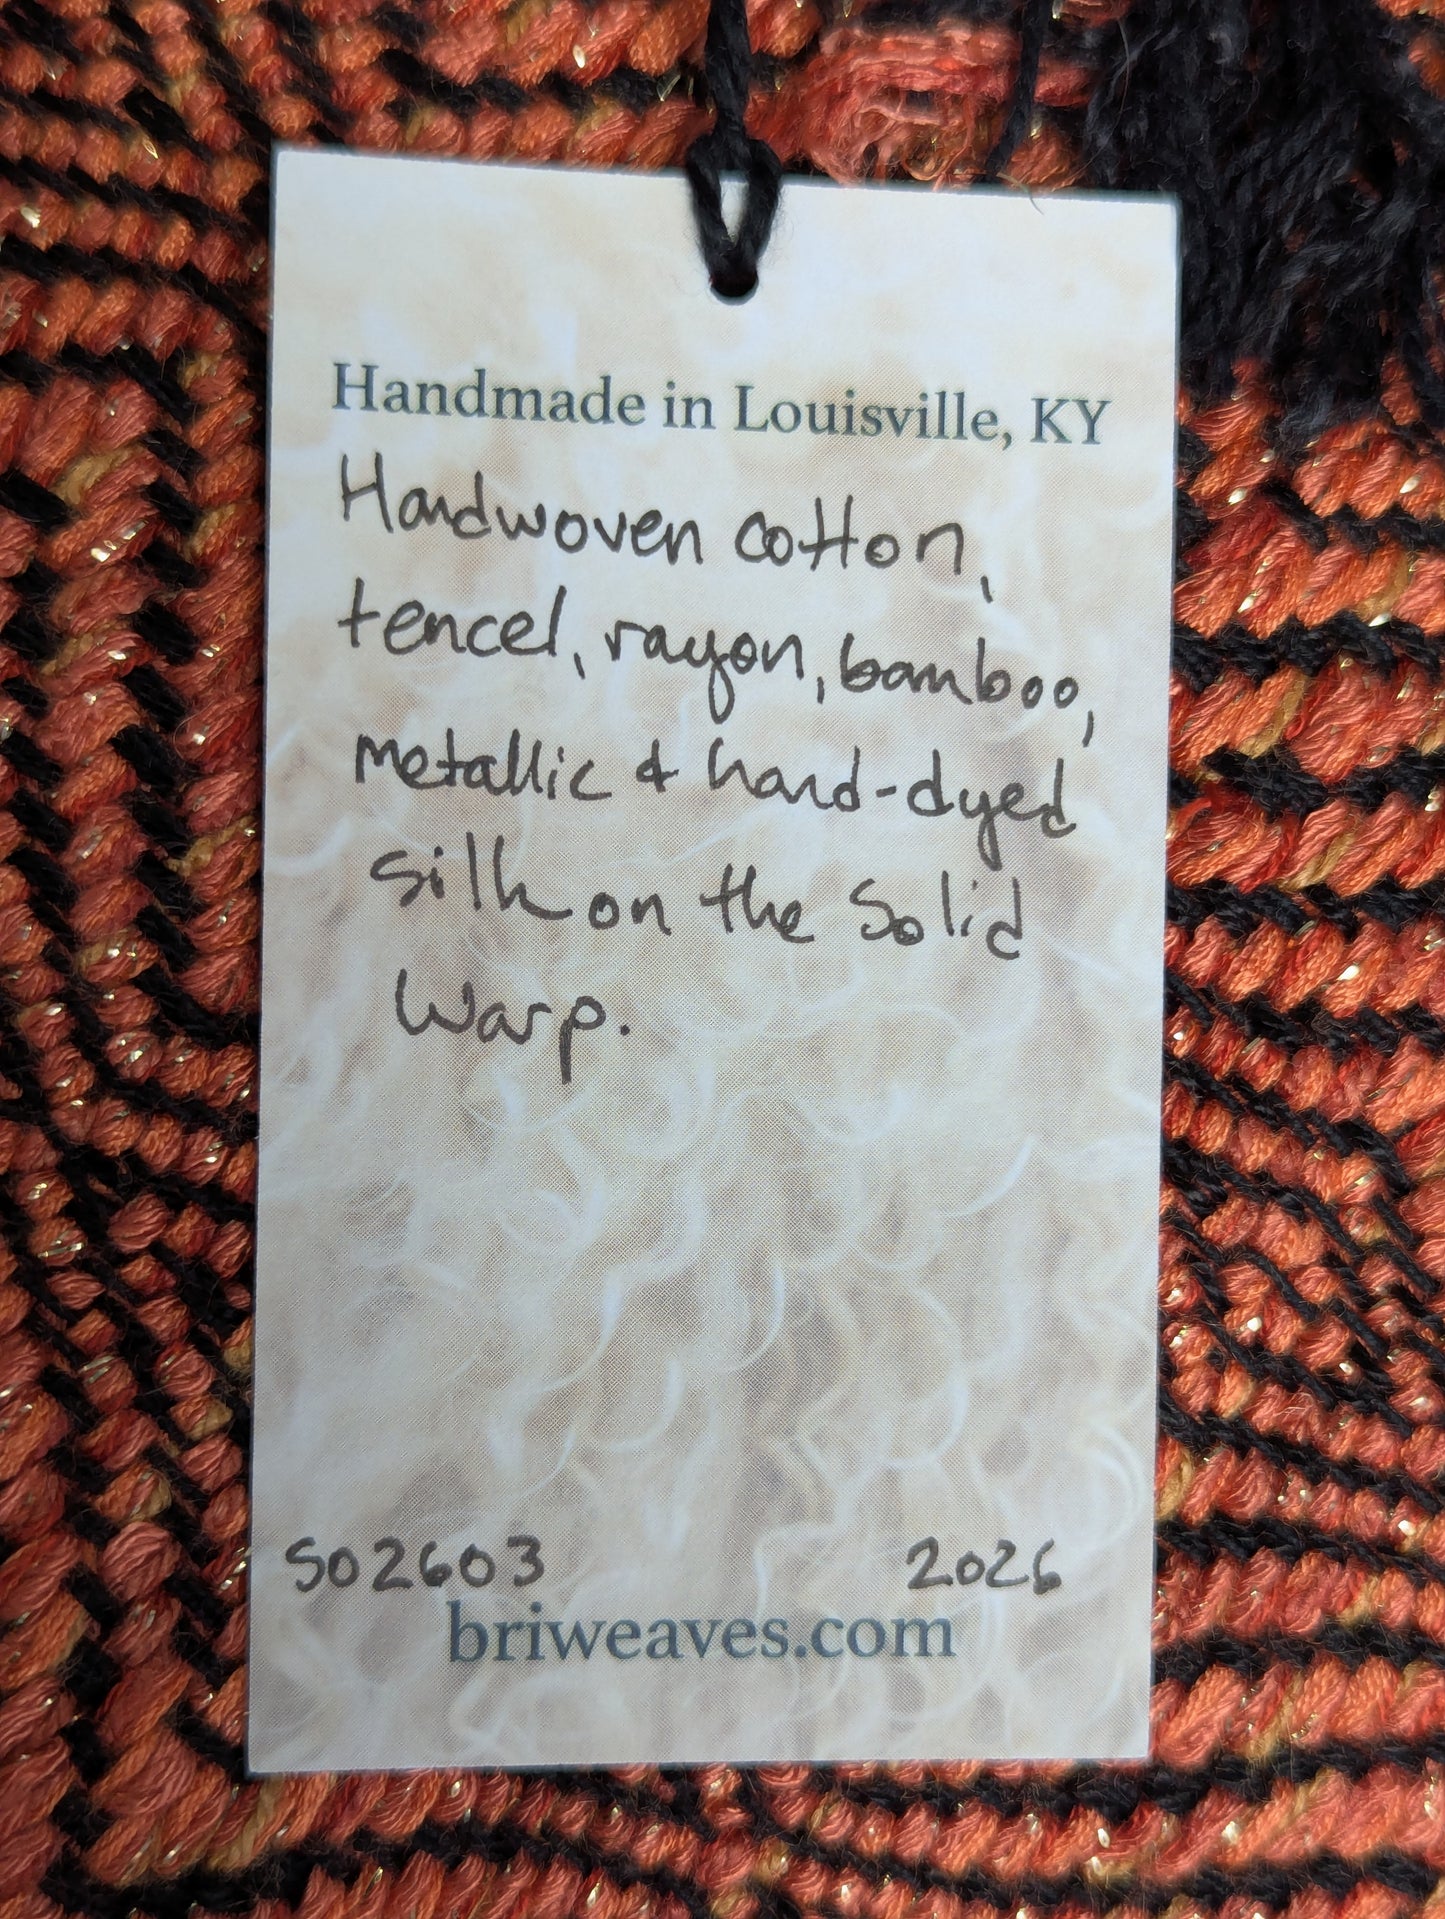 Handmade in Louisville, KY
Handwoven cotton,
tencel, rayon, bamboo,
metallic & hand-dyed
silk on the Solid
Warp.
SO2603 2026
briweaves.com